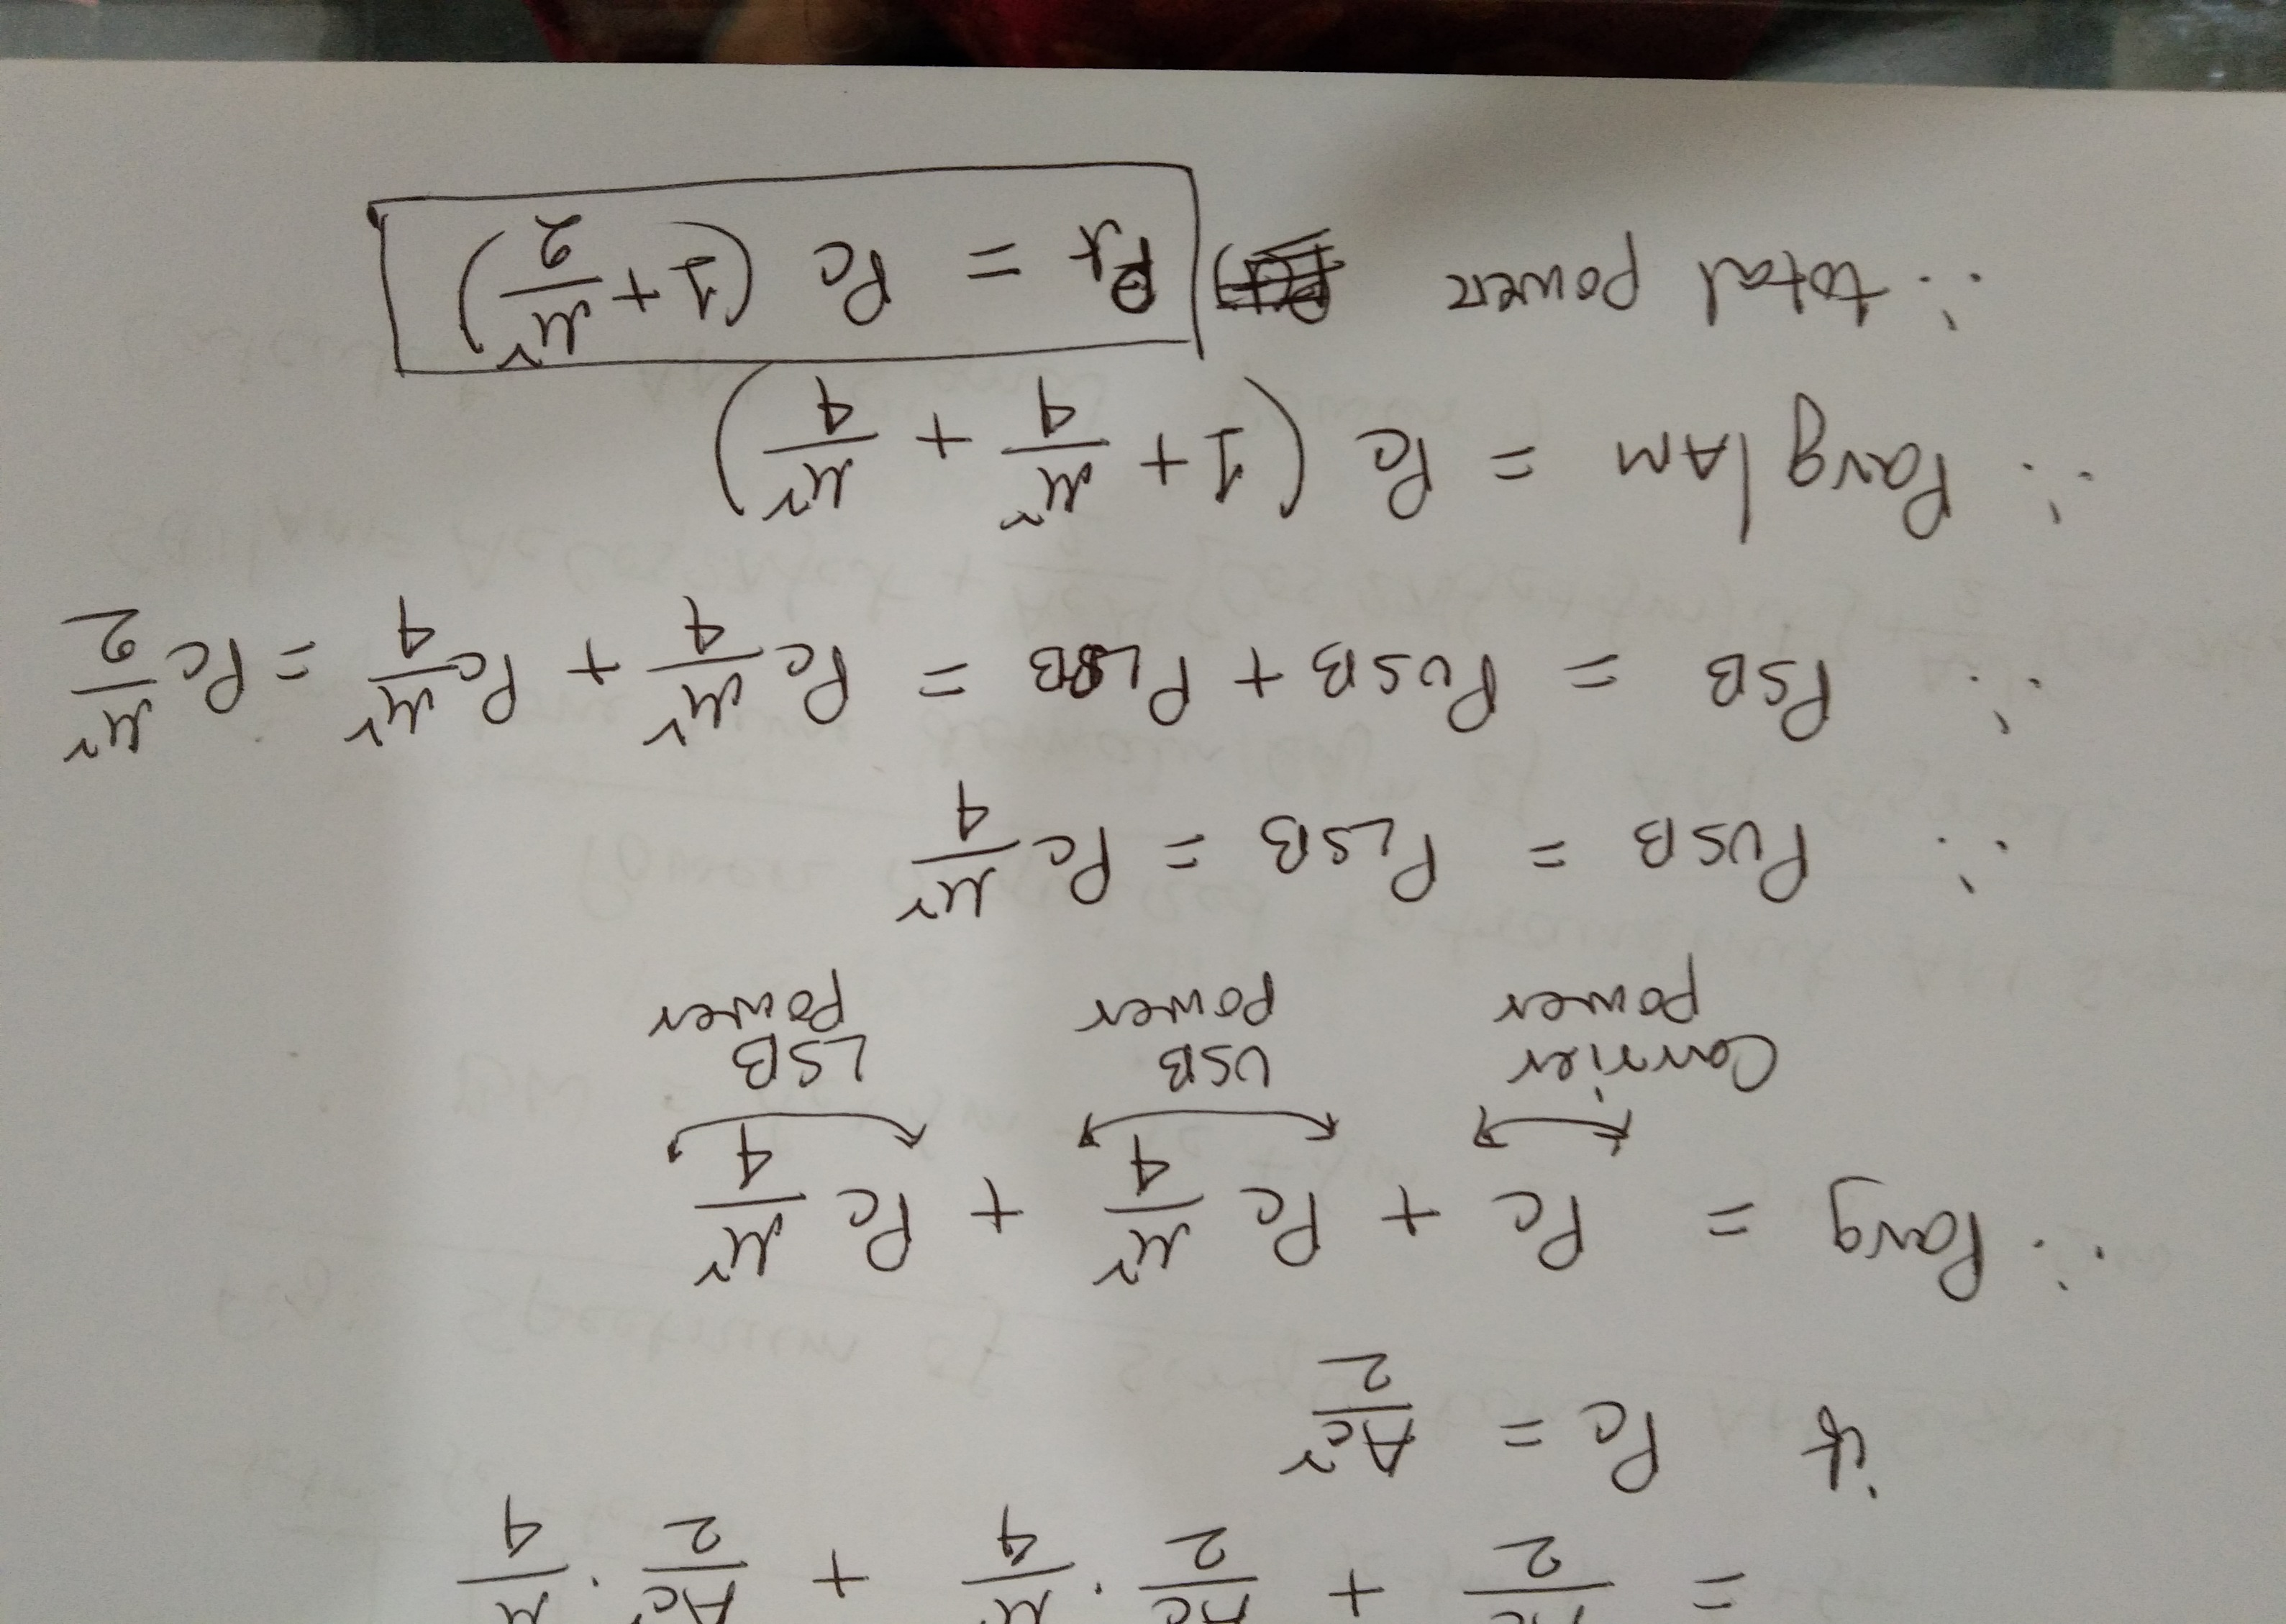 = Ac²/2 + Ac²/2 · μ²/4 + Ac²/2 · μ²/4
if Pc = Ac²/2
∴ Pavg = Pc + Pc μ²/4 + Pc μ²/4
Carrier power USB power LSB power
∴ PUSB = PLSB = Pc μ²/4
∴ PSB = PUSB + PLSB = Pc μ²/4 + Pc μ²/4 = Pc μ²/2
∴ Pavg|AM = Pc (1 + μ²/4 + μ²/4)
∴ total power Pt = Pc (1 + μ²/2)